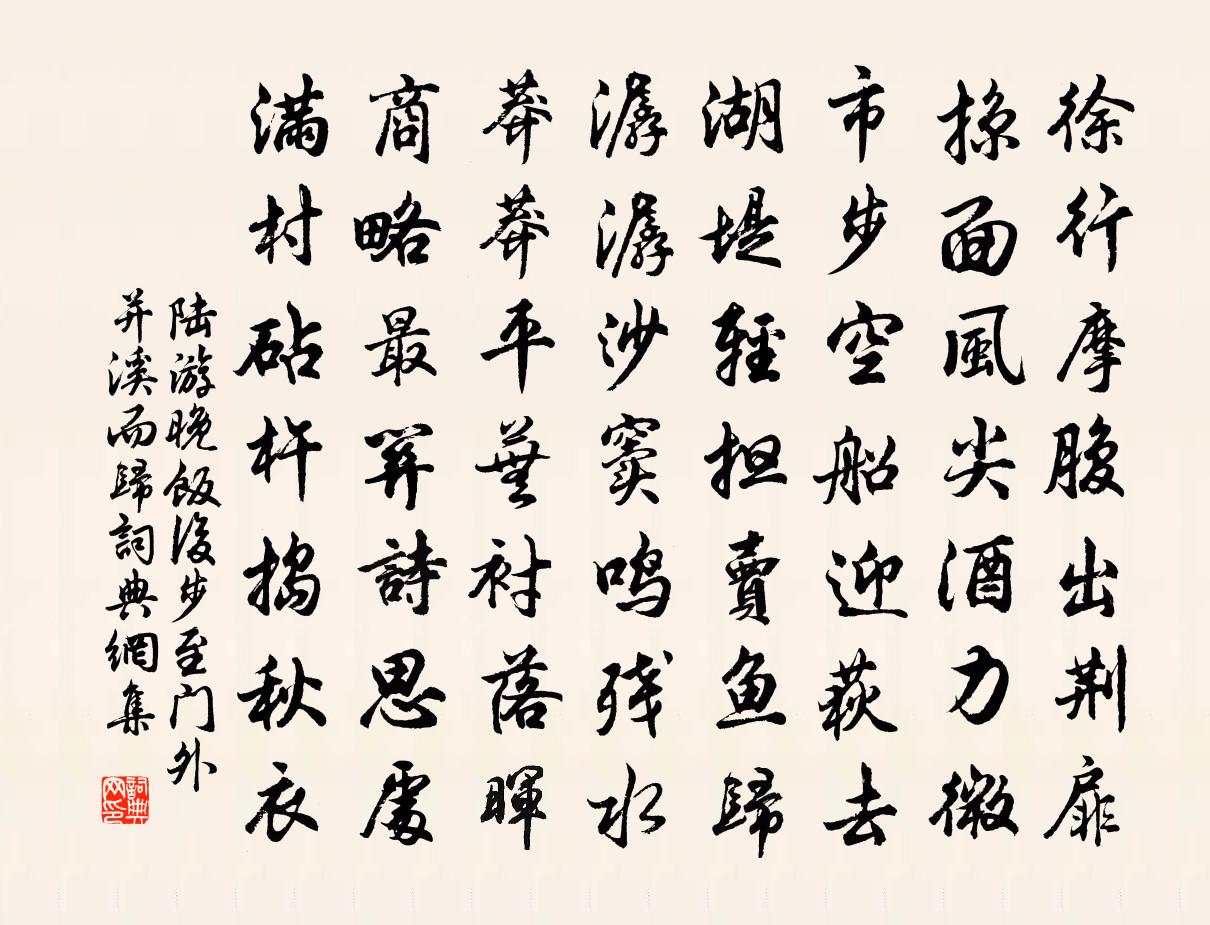 徐行摩腹出荆扉
掠面風尖酒力微
市步空船迎荻去
湖堤輕担賣魚歸
潺潺沙竇鳴残水
莽莽平蕪衬落暉
商略最関詩思處
满村砧杵搗秋衣
陆游晚飯後步至门外
并溪而歸詞典網集
詞典
网印